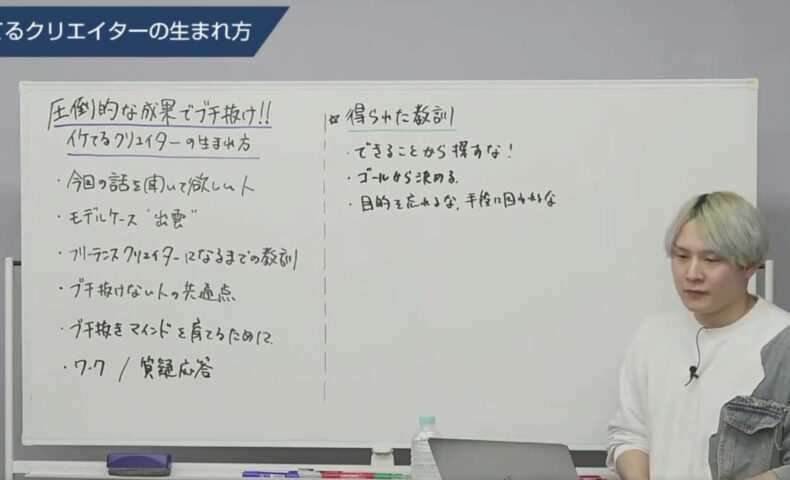 てるクリエイターの生まれ方
圧倒的な成果でブチ抜け!!
イケてるクリエイターの生まれ方
・今回の話を聞いて欲しい人
・モデルケース "出雲"
・フリーランスクリエイターになるまでの教訓
・ブチ抜けない人の共通点
・ブチ抜きマインドを育てるために
・ワーク / 質疑応答
☆ 得られた教訓
・できることから探すな!
・ゴールから決める
・目的を忘れるな、手段に囚われるな